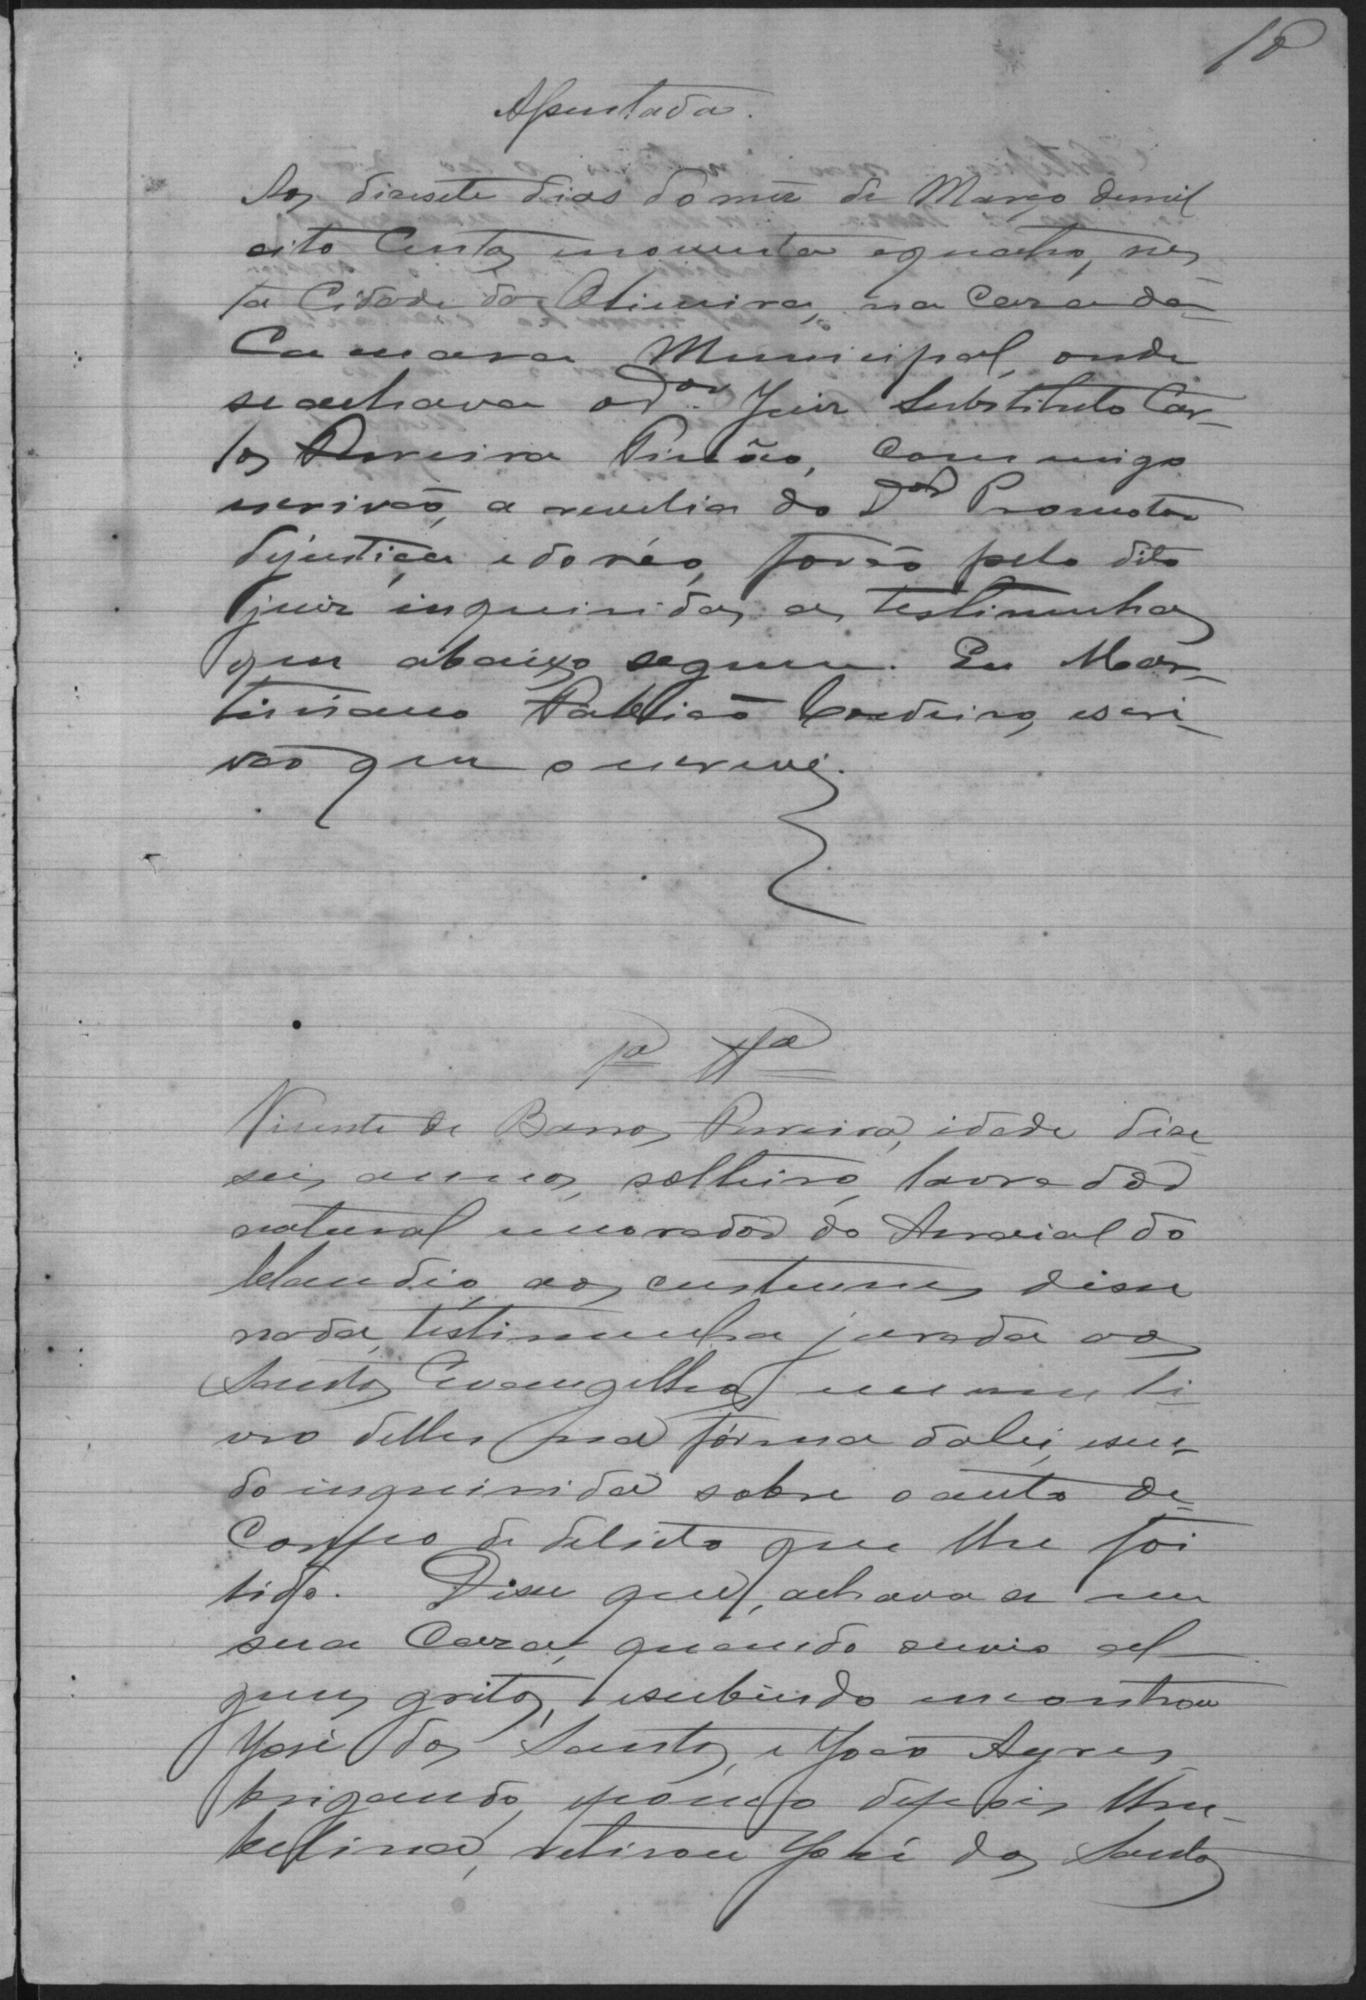 10
Assentada.
Aos desesete dias do mez de Março demil
oito Centos enoventa equatro, nes-
ta Cidade da Oliveira, na Caza da
Camara Municipal, onde
seachava o Dor. Juiz Substituto Car-
los Pereira Pinão, Commigo
escrivão, a revelia do Dor Promotor
dejustiça, edoréo, forão pelo dito
juiz inqueridas as testimunhas
que abaixo seguem. Eu Mar-
timiano Paulicio Cordeiro, escri-
vão que o escrevi.
1a Tta
Vicente de Barros Pereira, idade deze
seis annos, solteiro, lavrador
natural emorador do Arraial do
Claudio, aos custumes disse
nada, testimunha jurada aos
Santos Evangelhos em um li-
vro delles na fórma dalei, esen-
do inquerida sobre oauto de
Corpo de delicto que lhe foi
lido. Disse que, achava a em
sua Caza, quando ouvio al-
guns gritos, esubindo encontrou
José dos Santos, e João Ayres
brigando, epouco depois Um-
belina, retirou José dos Santos